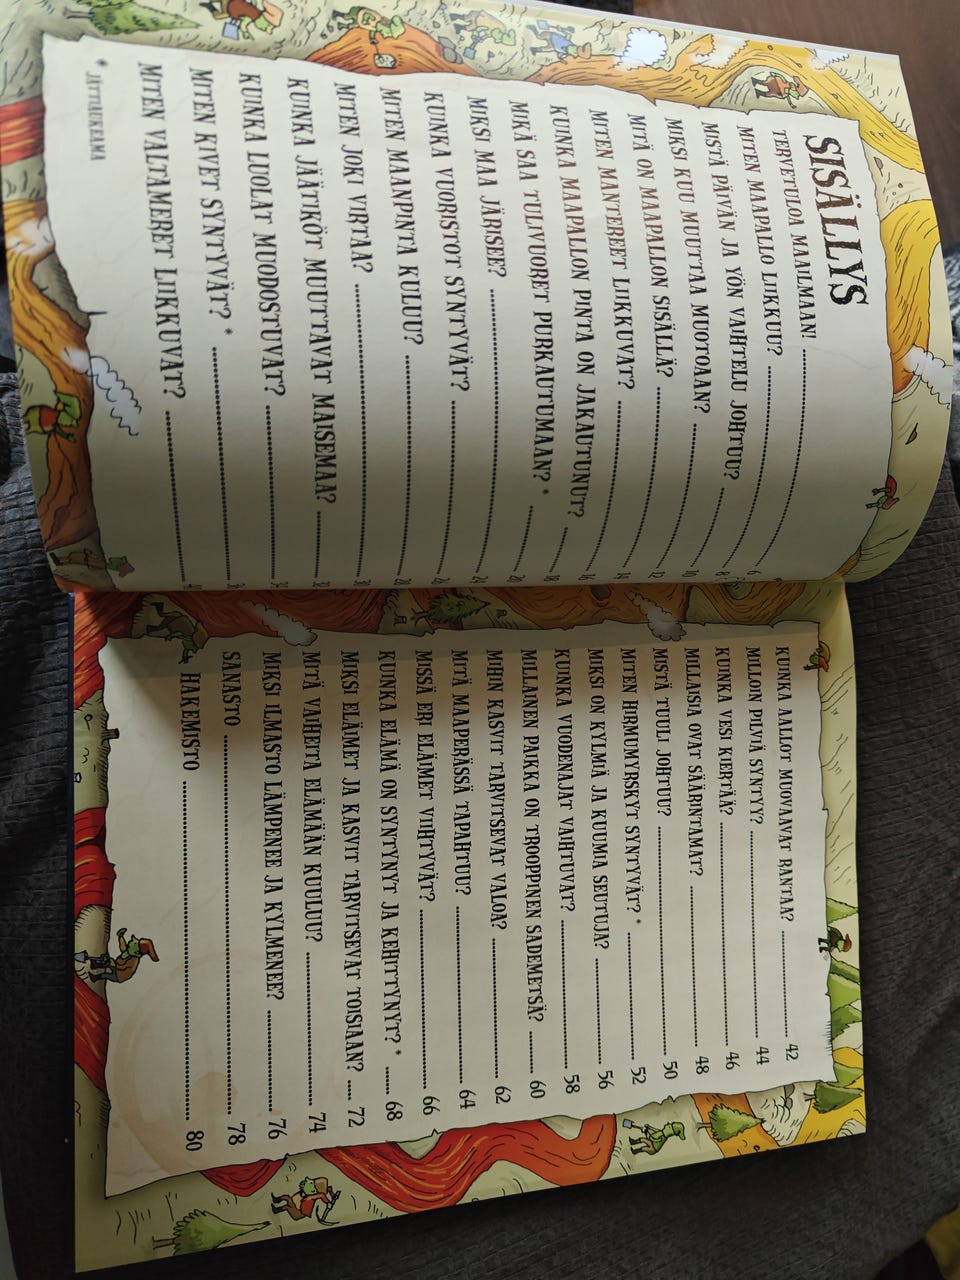 SISÄLLYS
TERVETULOA MAAILMAAN! 6
MITEN MAAPALLO LIIKKUU? 8
MISTÄ PÄIVÄN JA YÖN VAIHTELU JOHTUU? 10
MIKSI KUU MUUTTAA MUOTOAAN? 12
MITÄ ON MAAPALLON SISÄLLÄ? 14
MITEN MANTEREET LIIKKUVAT? 16
KUINKA MAAPALLON PINTA ON JAKAUTUNUT? 18
MIKÄ SAA TULIVUORET PURKAUTUMAAN? * 20
MIKSI MAA JÄRISEE? 24
KUINKA VUORISTOT SYNTYVÄT? 26
MITEN MAANPINTA KULUU? 28
MITEN JOKI VIRTAA? 30
KUINKA JÄÄTIKÖT MUUTTAVAT MAISEMAA? 32
KUINKA LUOLAT MUODOSTUVAT? 34
MITEN KIVET SYNTYVÄT? *
MITEN VALTAMERET LIIKKUVAT? 40
* JÄTTIAUKEAMA
KUINKA AALLOT MUOVAAVAT RANTAA? 42
MILLOIN PILVIÄ SYNTYY? 44
KUINKA VESI KIERTÄÄ? 46
MILLAISIA OVAT SÄÄRINTAMAT? 48
MISTÄ TUULI JOHTUU? 50
MITEN HIRMUMYRSKYT SYNTYVÄT? * 52
MIKSI ON KYLMIÄ JA KUUMIA SEUTUJA? 56
KUINKA VUODENAJAT VAIHTUVAT? 58
MILLAINEN PAIKKA ON TROOPPINEN SADEMETSÄ? 60
MIHIN KASVIT TARVITSEVAT VALOA? 62
MITÄ MAAPERÄSSÄ TAPAHTUU? 64
MISSÄ ERI ELÄIMET VIIHTYVÄT? 66
KUINKA ELÄMÄ ON SYNTYNYT JA KEHITTYNYT? * 68
MIKSI ELÄIMET JA KASVIT TARVITSEVAT TOISIAAN? 72
MITÄ VAIHEITA ELÄMÄÄN KUULUU? 74
MIKSI ILMASTO LÄMPENEE JA KYLMENEE? 76
SANASTO 78
HAKEMISTO 80